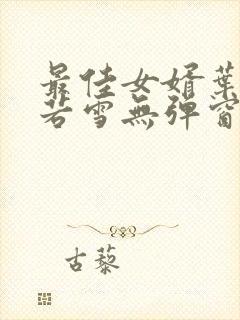 最佳女婿葉
若雪無彈窗
古藜